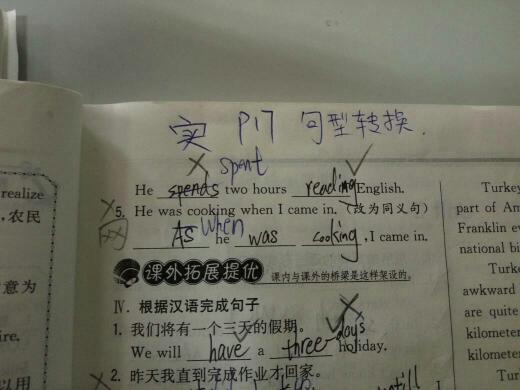 实 P17 句型转换.
spent
He spends two hours reading English.
5. He was cooking when I came in. (改为同义句)
when
As he was cooking, I came in.
课外拓展提优 课内与课外的桥梁是这样架设的。
Ⅳ. 根据汉语完成句子
1. 我们将有一个三天的假期。
We will have a three-days holiday.
2. 昨天我直到完成作业才回家。
realize
,农民
意为
ire.
以用
Turkey
part of Am
Franklin ev
national bi
Turke
awkward
are quite
kilometer
kilometer